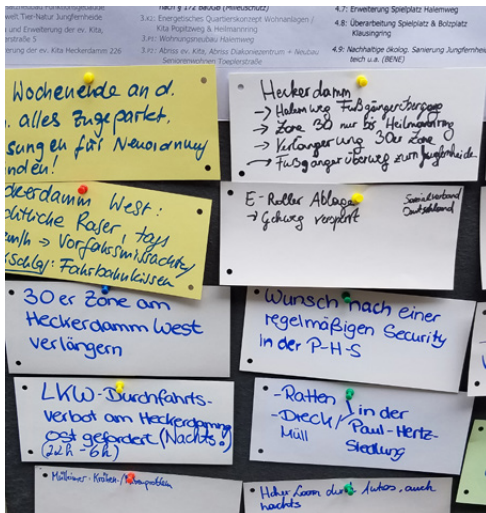 nach § 172 BauGB (Milieuschutz)
welt.Tier-Natur Jungfernheide
und Erweiterung der ev. Kita,
erstraße 5
erung der ev. Kita Heckerdamm 226
3.K2: Energetisches Quartierskonzept Wohnanlagen /
Kita Popitzweg & Heilmannring
3.K1: Wohnungsneubau Halemweg
3.K2: Abriss ev. Kita, Abriss Diakoniezentrum + Neubau
Seniorenwohnen Toeplerstraße
4.7: Erweiterung Spielplatz Halemweg
4.8: Überarbeitung Spielplatz & Bolzplatz
Klausingring
4.9: Nachhaltige ökolog. Sanierung Jungfernhei
teich u.a. (BENE)
Wochenende an d.
alles zugeparkt.
sungen für Neuordnung
nden!
Heckerdamm
-> Halemweg Fußgängerübergang
-> Zone 30 nur bis Heilmannring
-> Verlängerung 30er Zone
-> Fußgängerüberweg zum Jungfernheide
ckerdamm West:
chtliche Raser, tags
-> Vorfahrtsmissachtung
schlag: Fahrbahnkissen
E-Roller Ablage
-> Gehweg versperrt
Sozialverband
Deutschland
30er Zone am
Heckerdamm West
verlängern
Wunsch nach einer
regelmäßigen Security
in der P-H-S
LKW-Durchfahrts-
verbot am Heckerdamm
Ost gefordert (Nachts!)
(22h - 6h)
- Ratten
- Dreck/
Müll
in der
Paul-Hertz-
Siedlung
Mülleimer - Krähen-/
Hoher Lärm durch Autos, auch
nachts